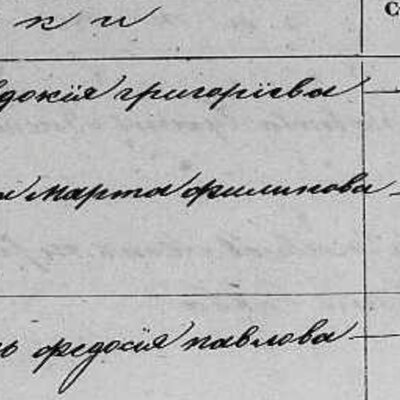 к и
с
вдокія григоріева
и марта филипова
ь федосія павлова